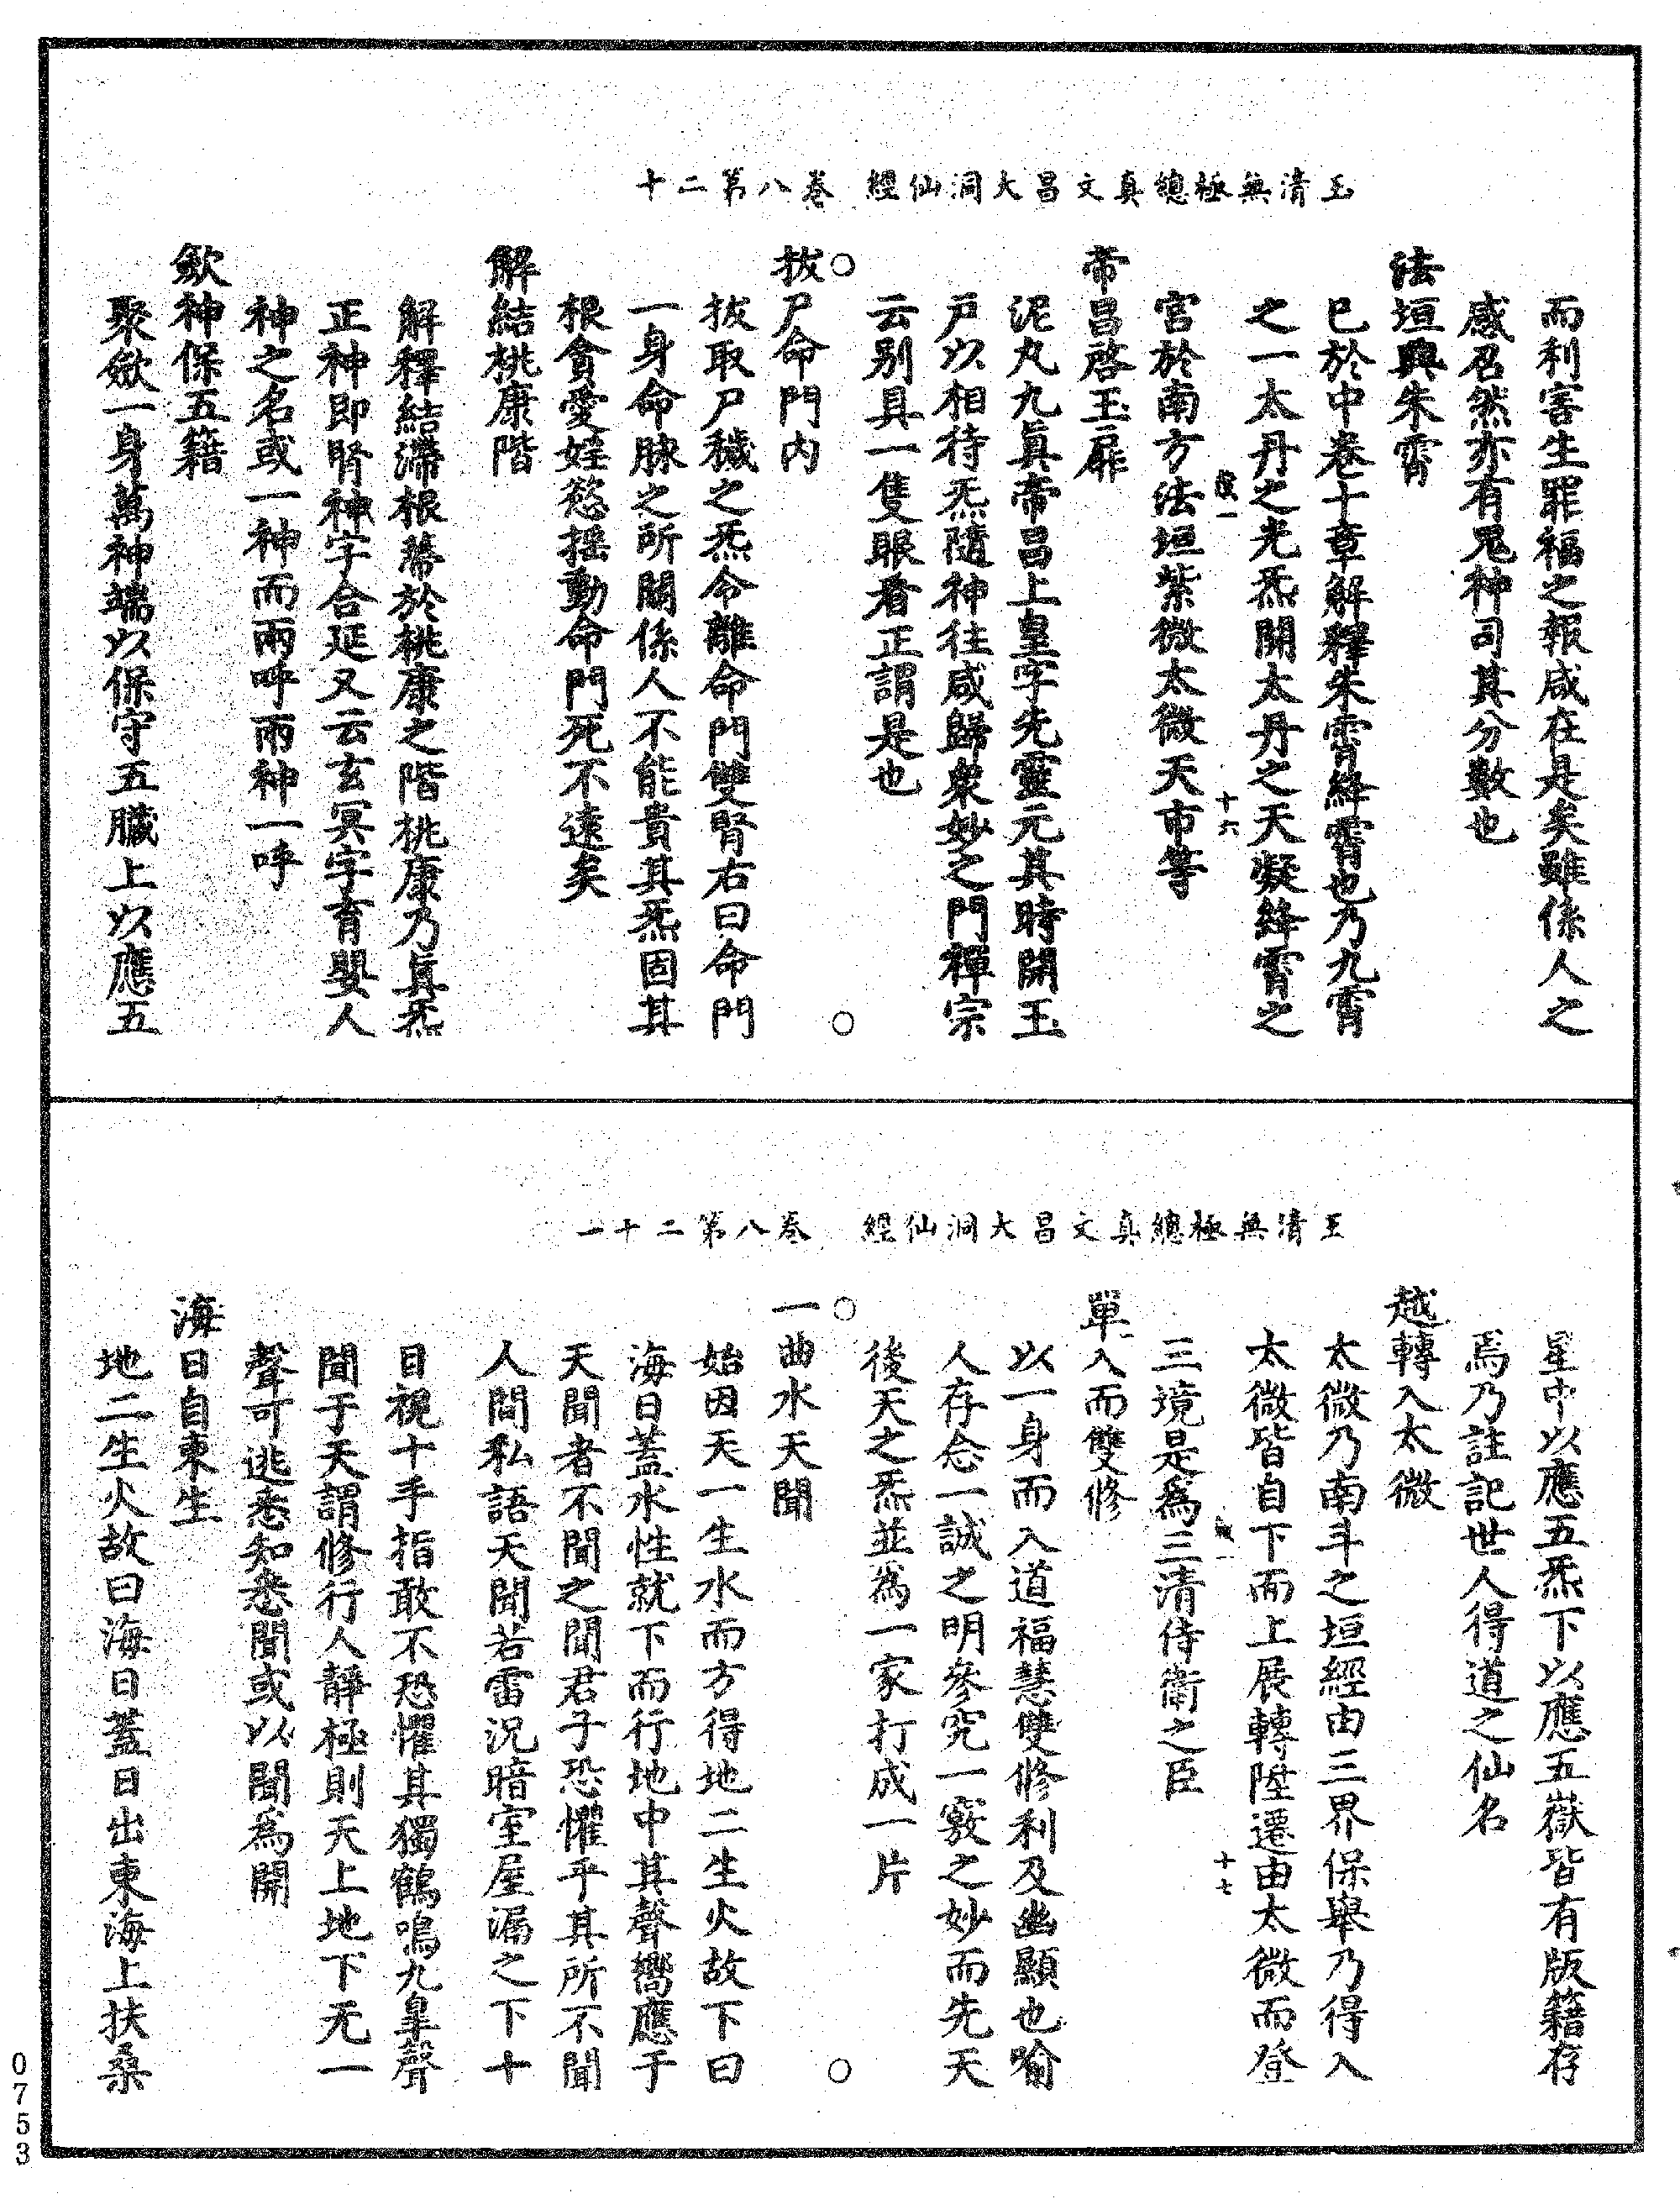 玉清無極總真文昌大洞仙經　卷八第二十
而利害生罪福之報咸在是矣雖係人之
感召然亦有鬼神司其分數也
法垣興朱霄
巳於中卷十章解釋朱霄絳霄也乃九霄
之一太丹之光炁開太丹之天凝絳霄之
十六
宮於南方法垣紫微太微天市等
帝昌啓玉扉
泥丸九眞帝昌上皇字先靈元其時開玉
戸以相待炁隨神往咸歸衆妙之門禪宗
云别具一隻眼看正謂是也
○　○
拔尸命門内
拔取尸穢之炁令離命門雙腎右曰命門
一身命脉之所關係人不能貴其炁固其
根貪愛婬慾摇動命門死不遠矣
解結桃康階
解釋結滯根蔕於桃康之階桃康乃眞炁
正神即腎神字合延又云玄冥字育嬰人
神之名或一神而兩呼兩神一呼
斂神保五籍
聚斂一身萬神端以保守五臟上以應五
玉清無極總真文昌大洞仙經　卷八第二十一
星中以應五炁下以應五嶽皆有版籍存
焉乃註記世人得道之仙名
越轉入太微
太微乃南斗之垣經由三界保舉乃得入
太微皆自下而上展轉陞遷由太微而登
十七
三境是爲三清侍衛之臣
單入而雙修
以一身而入道福慧雙修利及幽顯也喻
人存念一誠之明參究一竅之妙而先天
後天之炁並爲一家打成一片
○　○
一曲水天聞
始因天一生水而方得地二生火故下曰
海日蓋水性就下而行地中其聲嚮應于
天聞者不聞之聞君子恐懼乎其所不聞
人間私語天聞若雷況暗室屋漏之下十
目視十手指敢不恐懼其獨鶴鳴九臯聲
聞于天謂修行人靜極則天上地下无一
聲可逃悉知悉聞或以聞爲開
海日自東生
地二生火故曰海日蓋日出東海上扶桑
0753